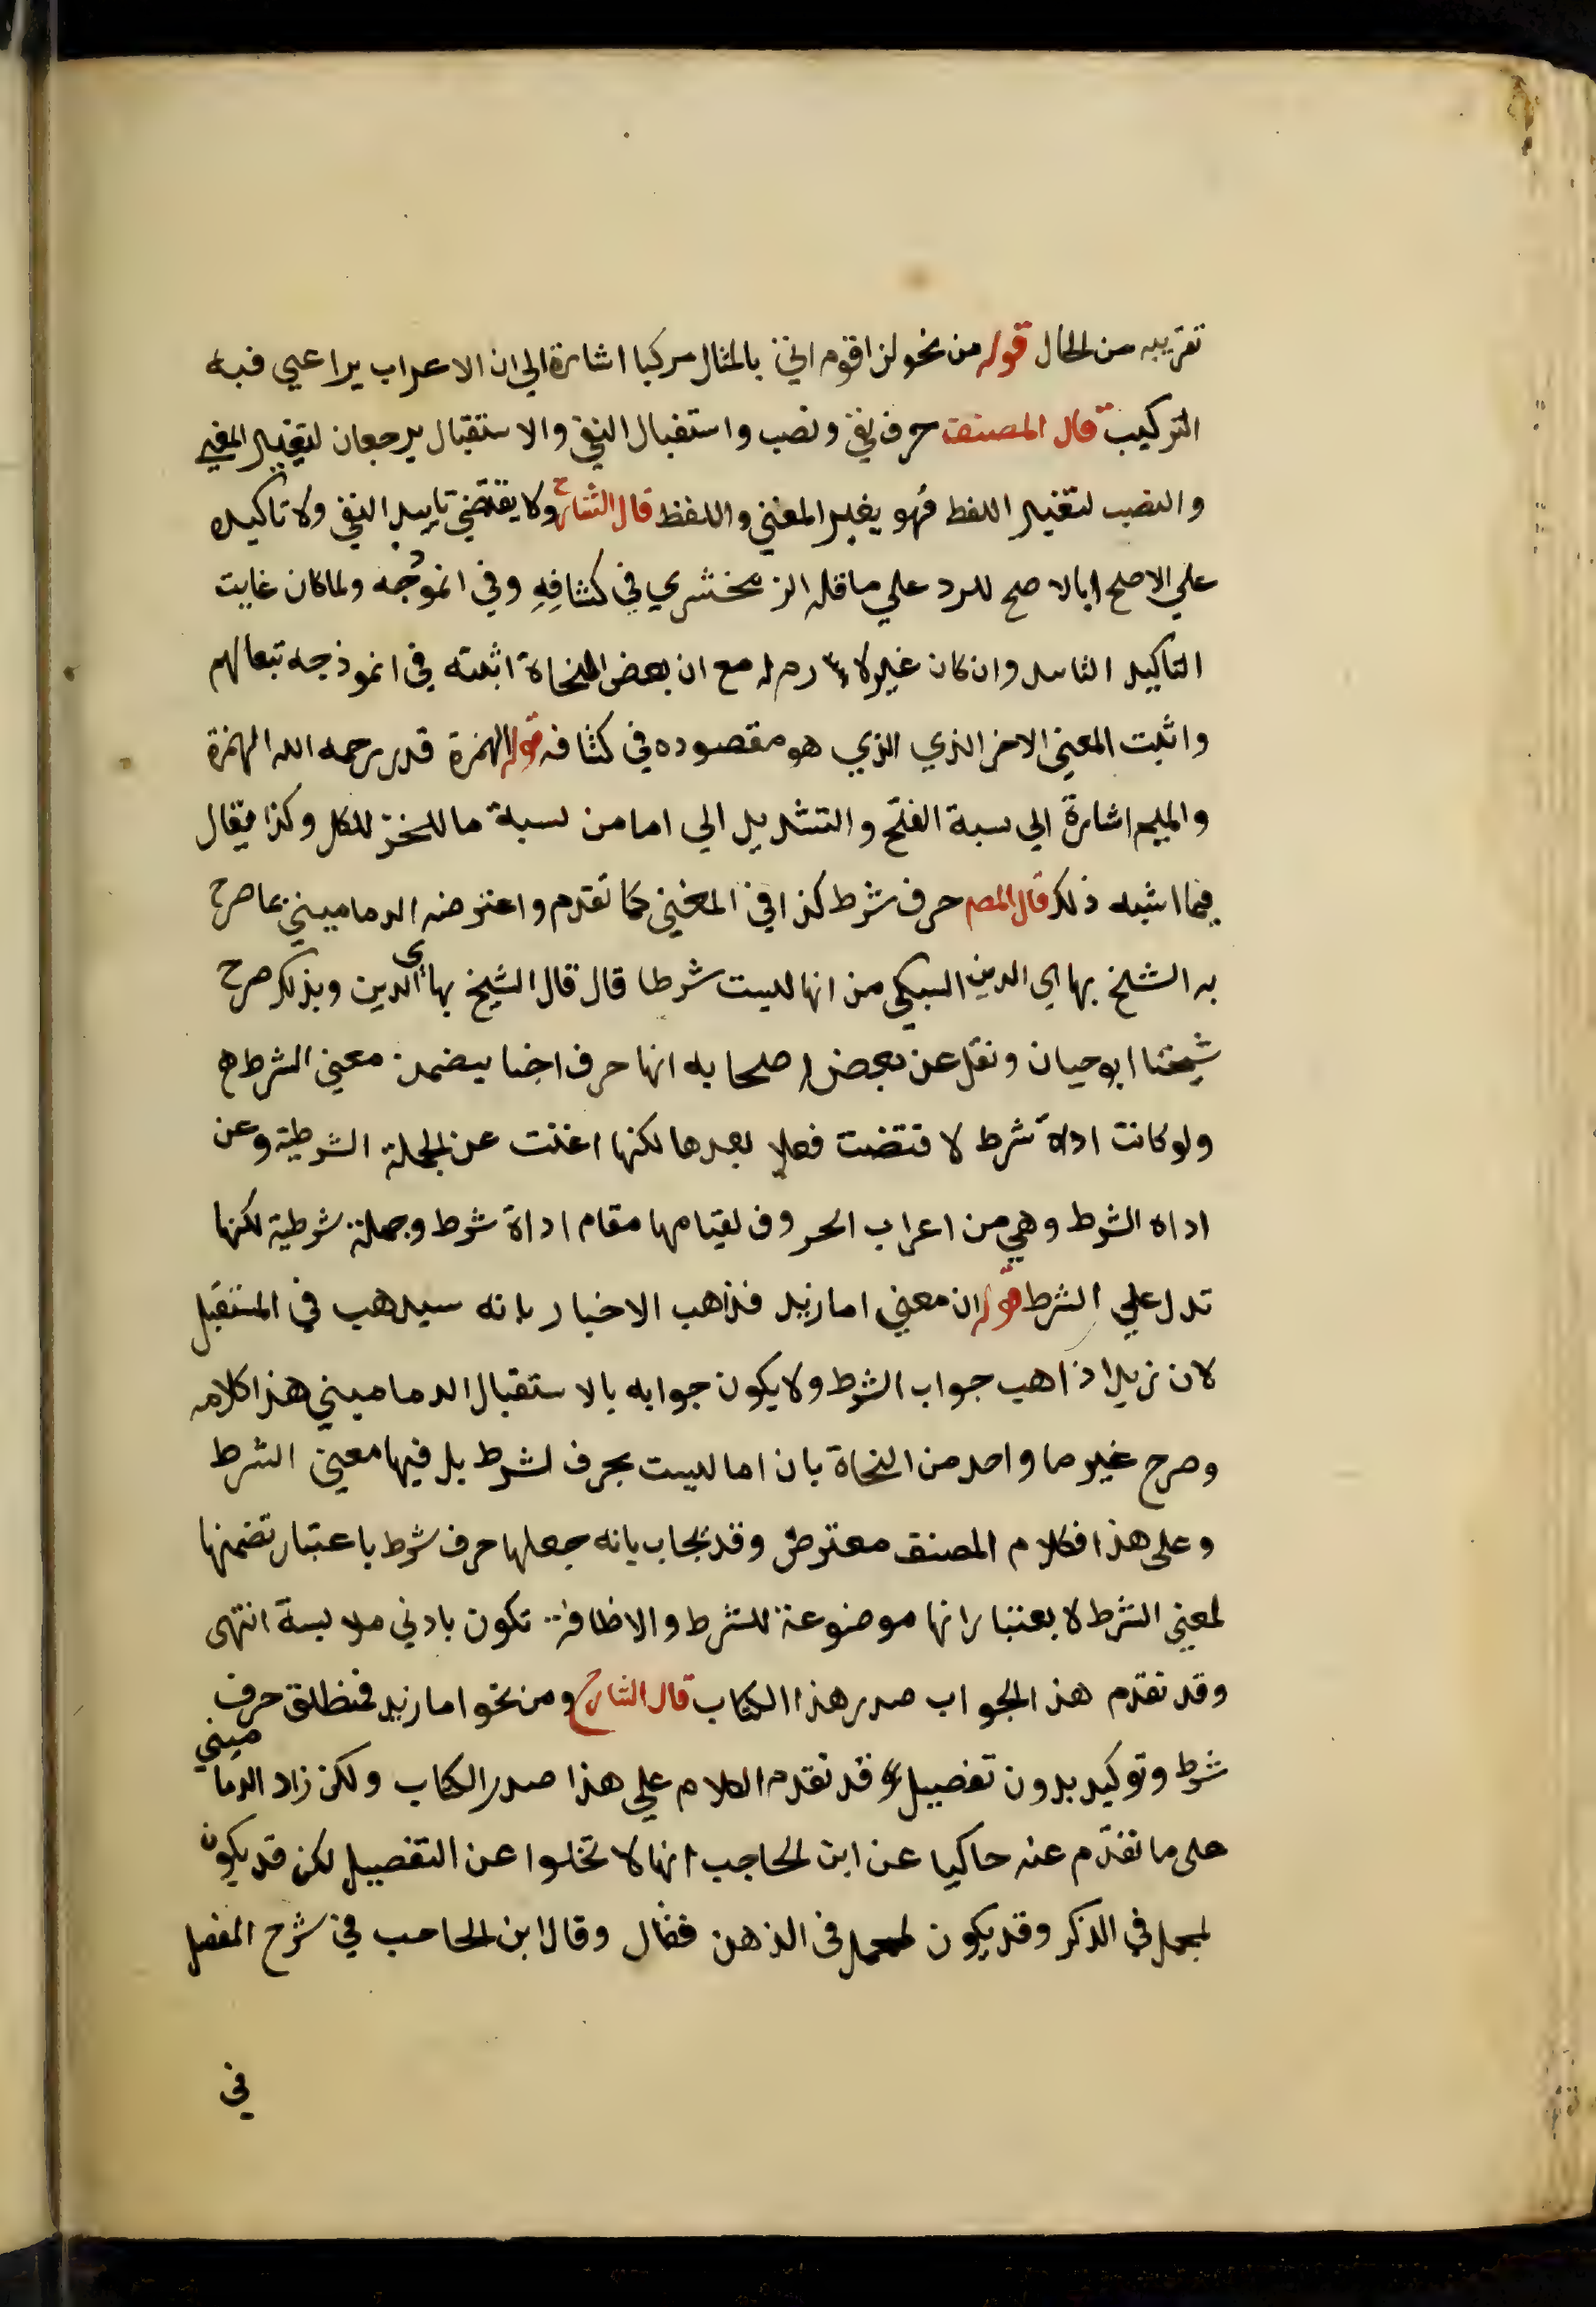 تقريبه من الحال قوله من نحو لن اقوم اتي بالمثال مركبا اشارة الي ان الاعراب يراعي فيه
التركيب قال المصنف حرف نفي ونصب واستقبال النفي والاستقبال يرجعان لتغيير المعني
والنصب لتغيير اللفظ فهو يغير المعني واللفظ قال الشارح ولا يقتضي تاييد النفي ولا تاكيده
علي الاصح بالاصح للرد علي ما قاله الزمخشري في كشافه وفي انموذجه ولما كان غايت
التاكيد التابيد وان كان غير مع ان بعض النحاة اثبته في انموذجه تبعا لهم
واثبت المعني الاخر الذي الذي هو مقصوده في كشافه قوله الهمزة قدر رحمه الله الهمزة
والميم اشارة الي نسبة الفتح والتشديد الي اما من نسبة ما للجزء للكل وكذا يقال
فيما اشبه ذلك قال المصـ حرف شرط كذا في المغني كما تقدم واعترضه الدماميني بما صرح
به الشيخ بهاي الدين السبكي من انها ليست شرطا قال قال الشيخ بهاي الدين وبذلك صرح
شيخنا ابو حيان ونقل عن بعض اصحابه انها حرف اخبار يضمن معني الشرط
ولو كانت اداة شرط لاقتضت فعلا بعدها لكنها اغنت عن الجملة الشرطية وعن
اداه الشرط وهي من اعراب الحروف لقيامها مقام اداة شرط وجملة شرطية لكنها
تدل علي الشرط قوله ان معني اما زيد فذاهب الاخبار بانه سيدهب في المستقبل
لان زيدا ذاهب جواب الشرط ولا يكون جوابه بالاستقبال الدماميني هذا كلامه
وصرح غير ما واحد من النحاة بان اما ليست بحرف لشرط بل فيها معني الشرط
وعلى هذا فكلام المصنف معترض وقد يجاب بانه جعلها حرف شرط باعتبار تضمنها
لمعني الشرط لا بعتبار انها موضوعة للشرط والاظافة تكون بادني ملابسة انتهى
وقد تقدم هذ الجواب صدر هذا الكتاب قال الشارح ومن نحو اما زيد فمنطلق حرف
شرط وتوكيد بدون تفصيل وقد تقدم الكلام علي هذا صدر الكتاب ولكن زاد الدماميني
على ما تقدم عنه حاكيا عن ابن الحاجب انها لا تخلوا عن التفصيل لكن قد يكون
لمجمل في الذكر وقد يكون لمجمل في الذهن فقال وقال ابن الحاجب في شرح المفصل
في